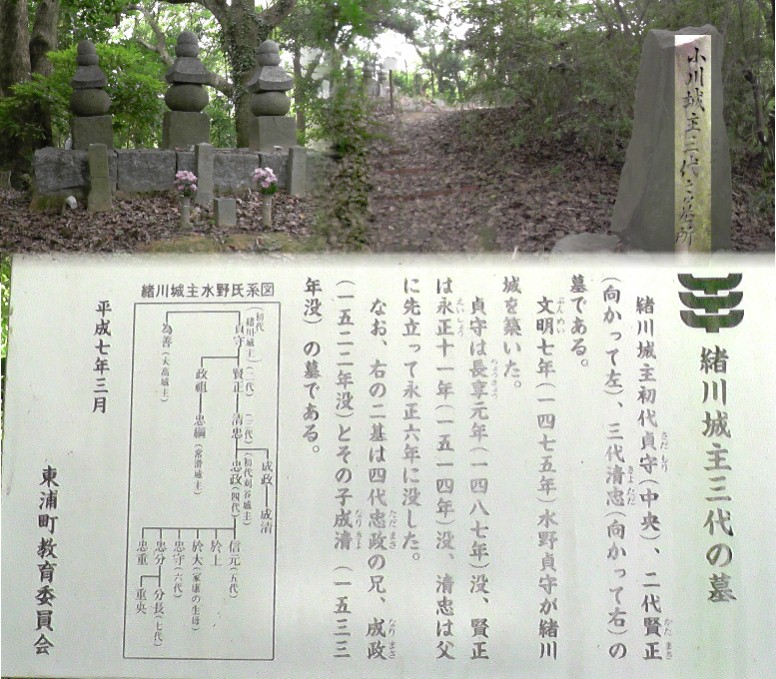 小川城主三代之墓所
緒川城主三代の墓
緒川城主初代貞守(中央)、二代賢正
(向かって左)、三代清忠(向かって右)の
墓である。
文明七年(一四七五年)水野貞守が緒川
城を築いた。
貞守は長享元年(一四八七年)没、賢正
は永正十一年(一五一四年)没、清忠は父
に先立って永正六年に没した。
なお、右の二基は四代忠政の兄、成政
(一五二二年没)とその子成清(一五三三
年没)の墓である。
緒川城主水野氏系図
(初代緒川城主)
貞守
(二代)
賢正
(三代)
清忠
(初代刈谷城主)
忠政(四代)
成政
成清
為善(大高城主)
政祖
忠綱(常滑城主)
信元(五代)
於上
於大(家康の生母)
忠守(六代)
忠分
分長(七代)
忠重
重央
平成七年三月
東浦町教育委員会